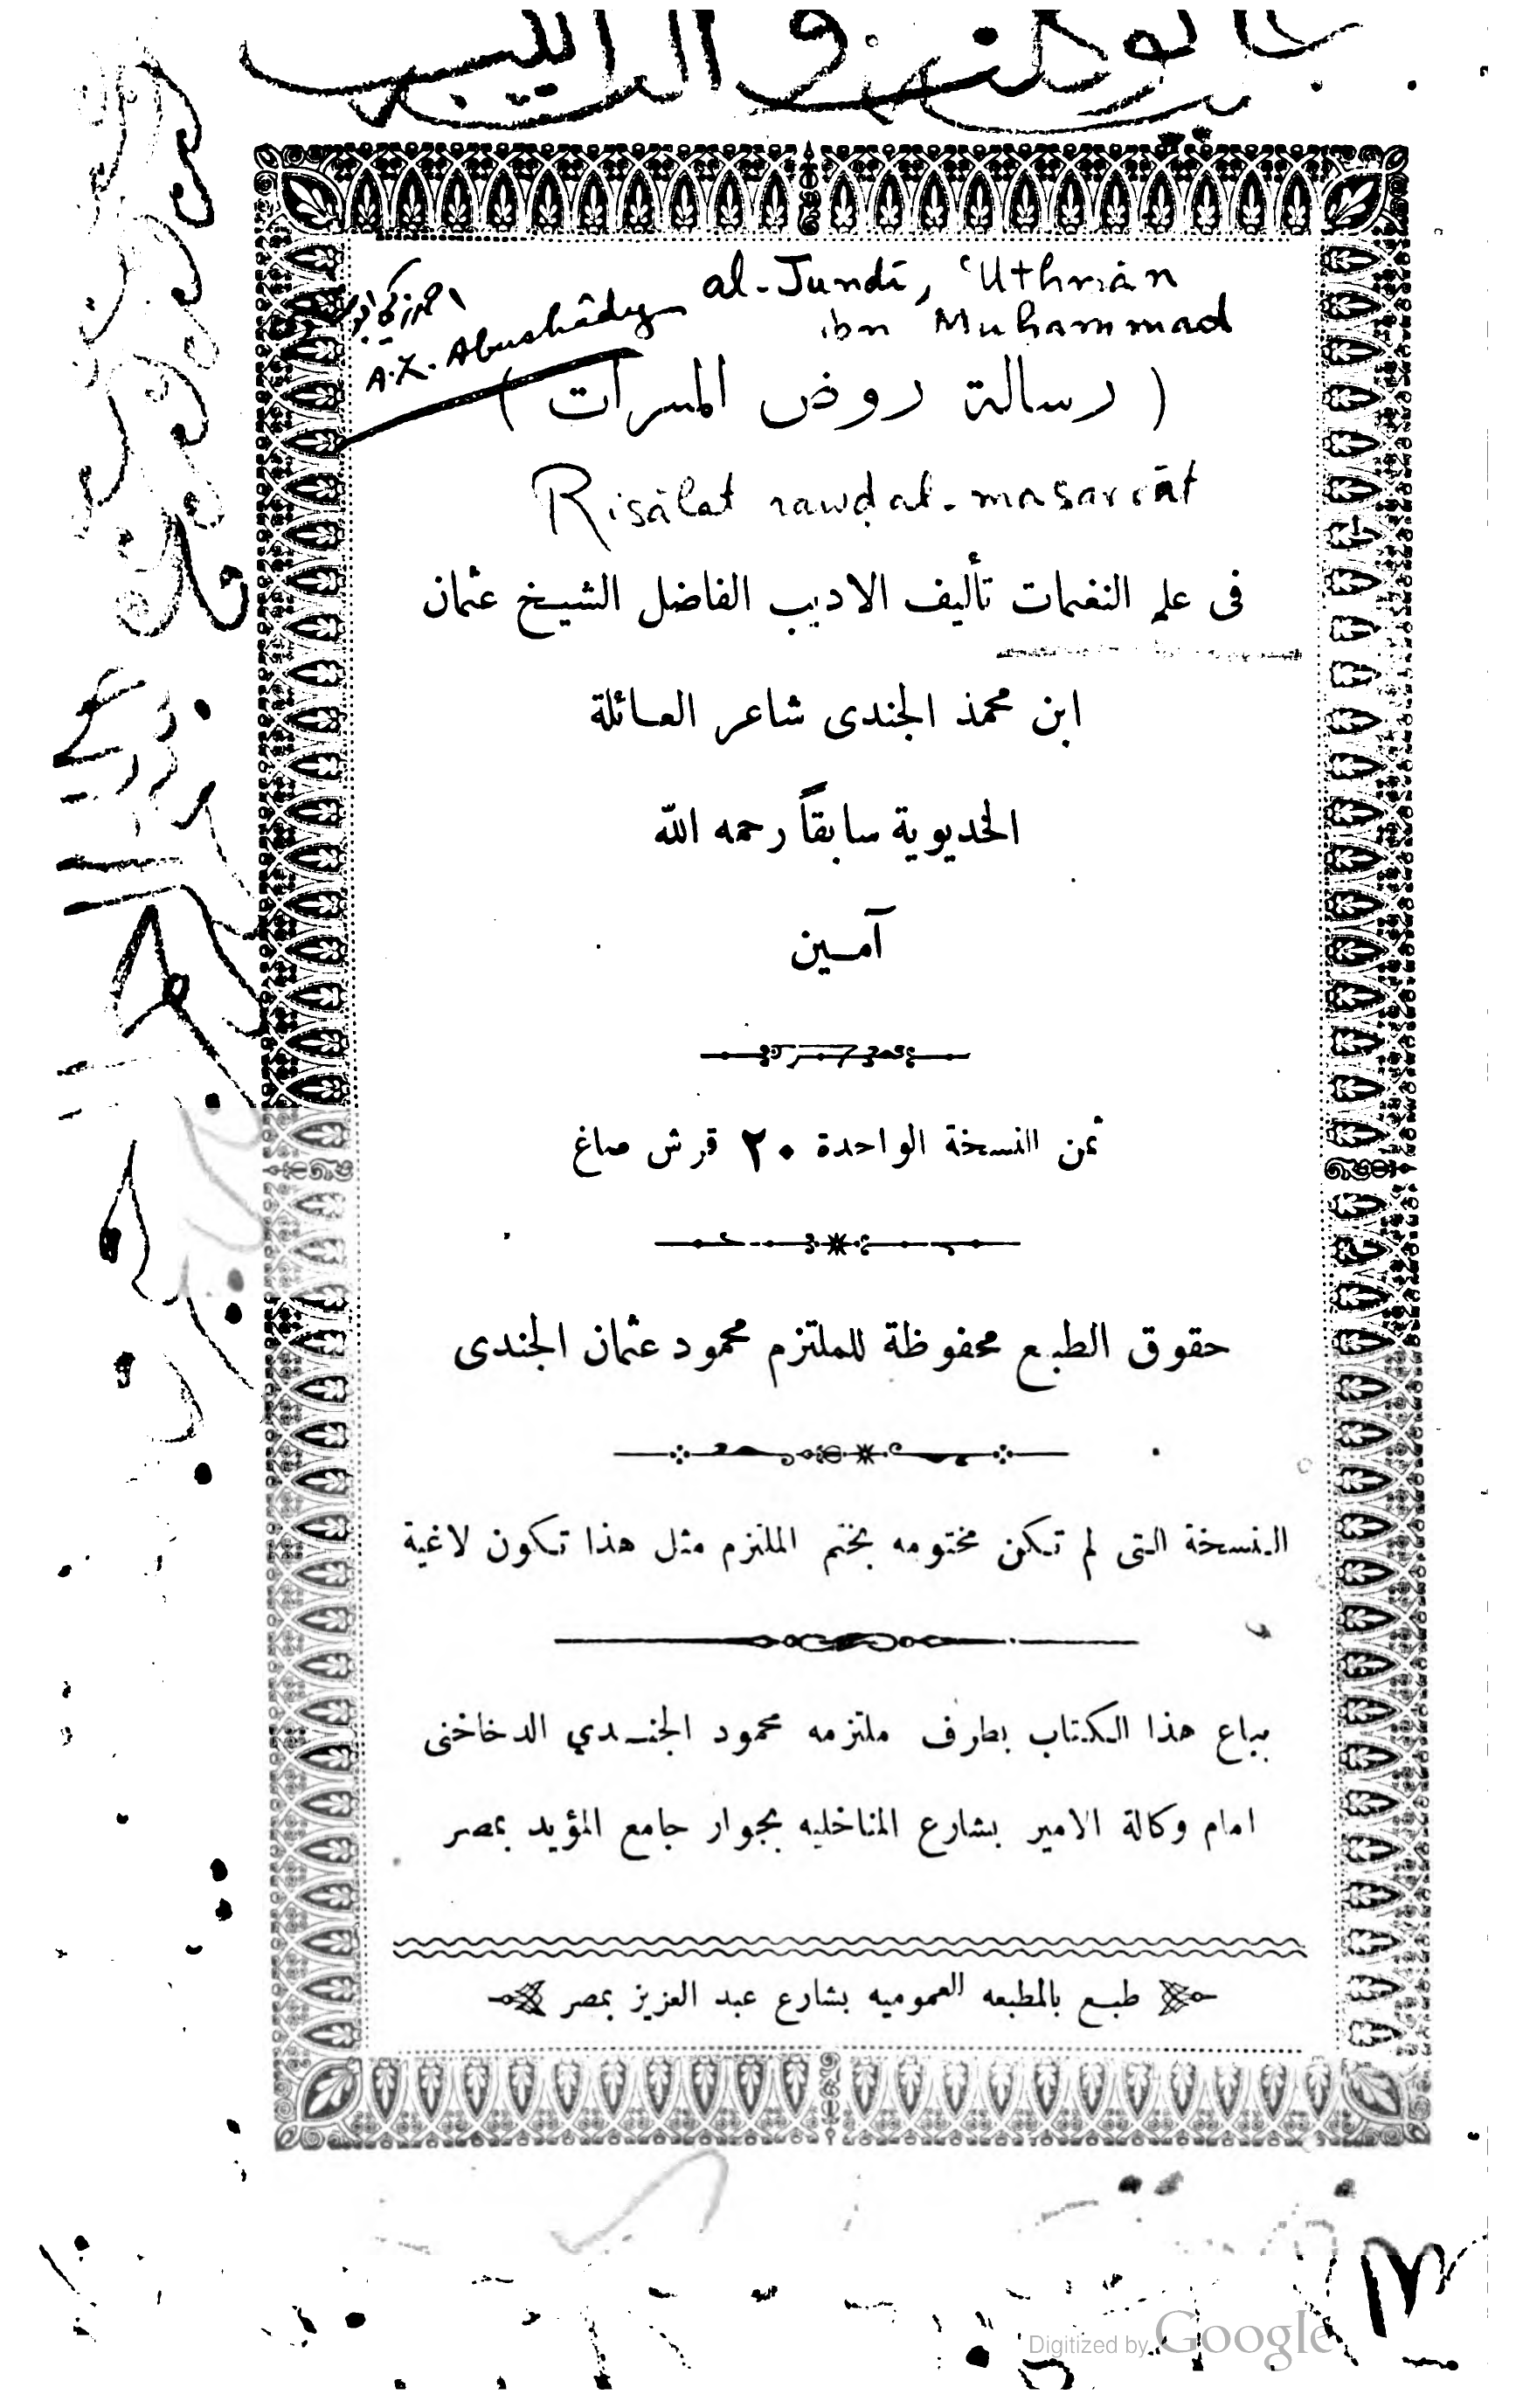 al-Jundī, ʿUthmān
ibn Muhammad
A.Z. Abushâdy
( رسالة روض المسرات )
Risālat rawḍ al-masarrāt
فى علم النغمات تأليف الاديب الفاضل الشيخ عثمان
ابن محمد الجندى شاعر العائلة
الخديوية سابقاً رحمه الله
آمين
ثمن النسخة الواحدة ٢٠ قرش صاغ
حقوق الطبع محفوظة للملتزم محمود عثمان الجندى
النسخة التى لم تكن مختومه بختم الملتزم مثل هذا تكون لاغية
يباع هذا الكتاب بطرف ملتزمه محمود الجندي الدخاخنى
امام وكالة الامير بشارع المناخليه بجوار جامع المؤيد بمصر
طبع بالمطبعه العموميه بشارع عبد العزيز بمصر
Digitized by Google